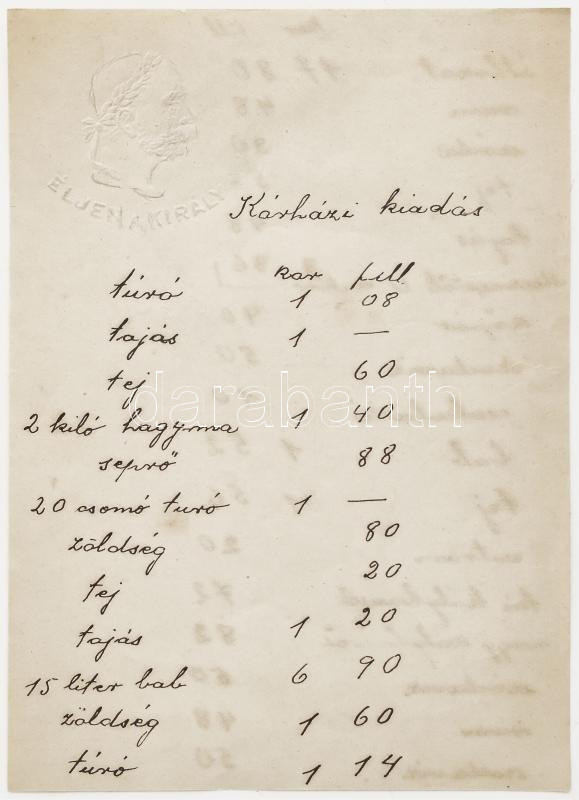 ÉLJEN A KIRÁLY
Kárházi kiadás
kor fill
túró 1 08
tajás 1 —
tej 60
2 kiló hagyma 1 40
seprő 88
20 csomó turó 1 —
zöldség 80
tej 20
tajás 1 20
15 liter bab 6 90
zöldség 1 60
túró 1 14
darabanth